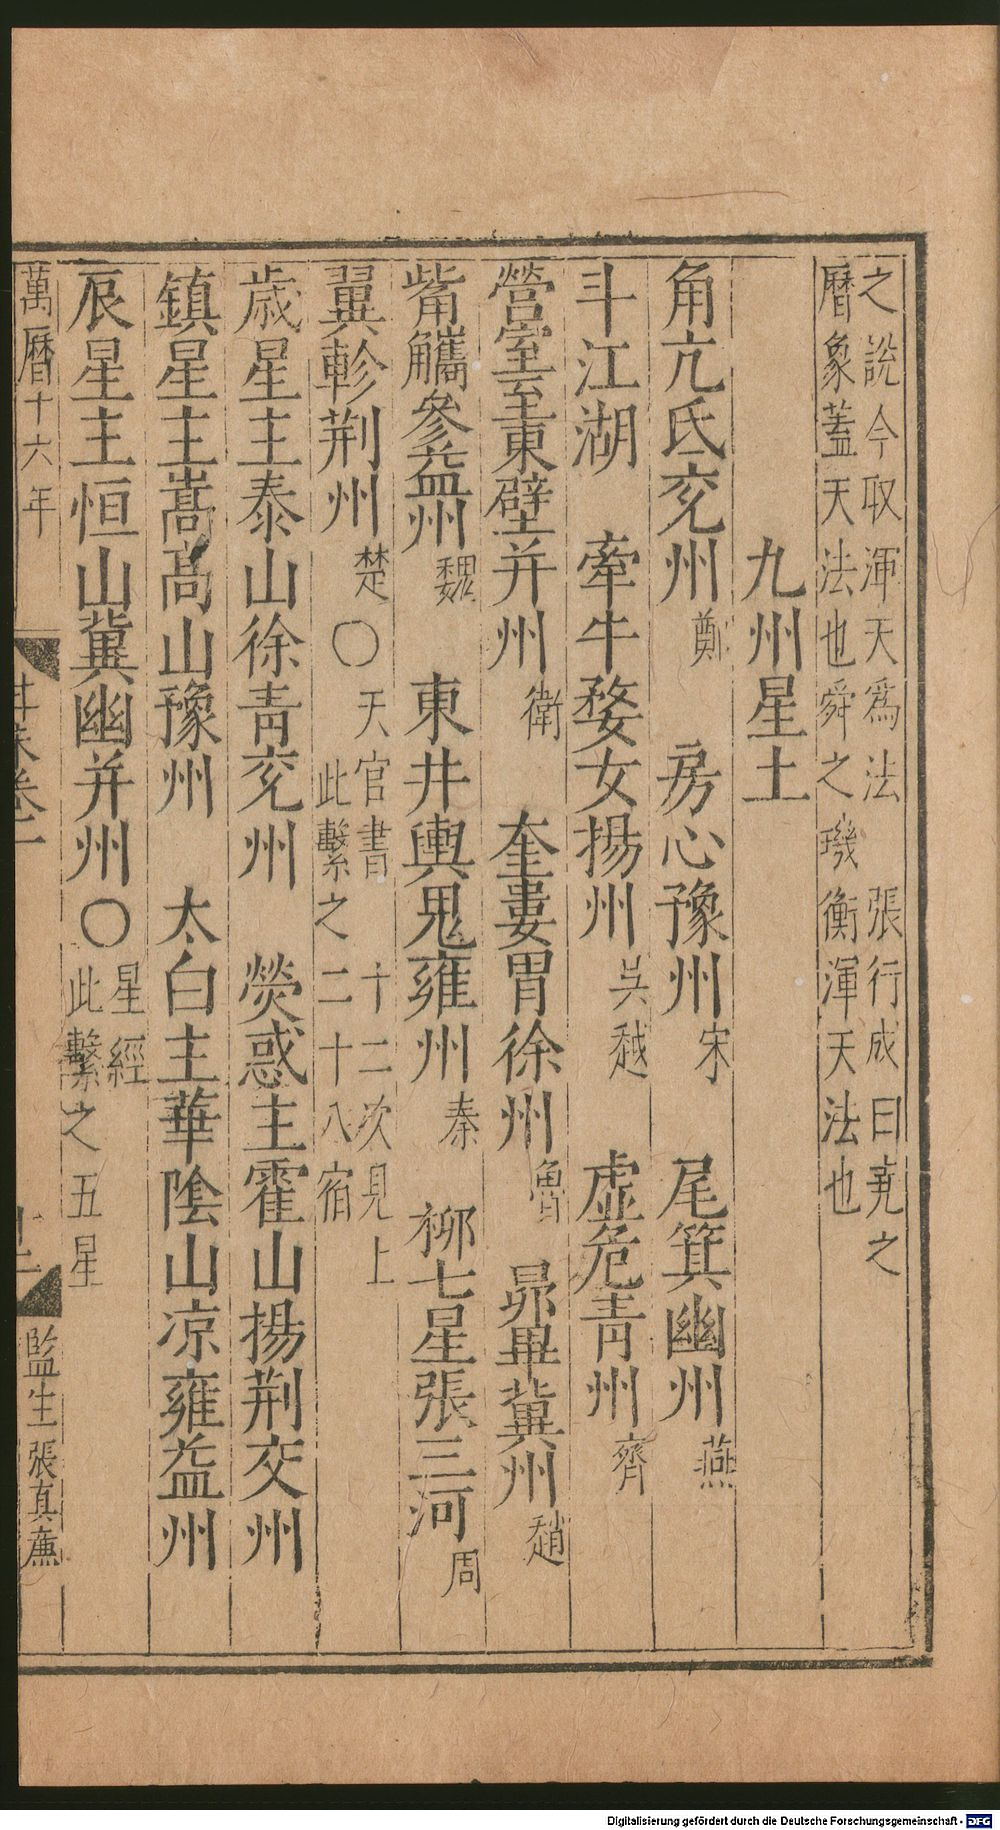 之說今取渾天爲法　張行成曰堯之
曆象蓋天法也舜之璣衡渾天法也
九州星土
角亢氐兖州鄭　房心豫州宋　尾箕幽州燕
斗江湖　牽牛婺女揚州吳越　虛危青州齊
營室至東壁并州衛　奎婁胃徐州魯　昴畢冀州趙
觜觿參益州魏　東井輿鬼雍州秦　柳七星張三河周
翼軫荆州楚〇天官書　十二次見上
此繫之二十八宿
歲星主泰山徐青兖州　熒惑主霍山揚荆交州
鎮星主嵩高山豫州　太白主華陰山凉雍益州
辰星主恒山冀幽并州〇星經
此繫之五星
萬曆十六年
監生張真
Digitalisierung gefördert durch die Deutsche Forschungsgemeinschaft - DFG